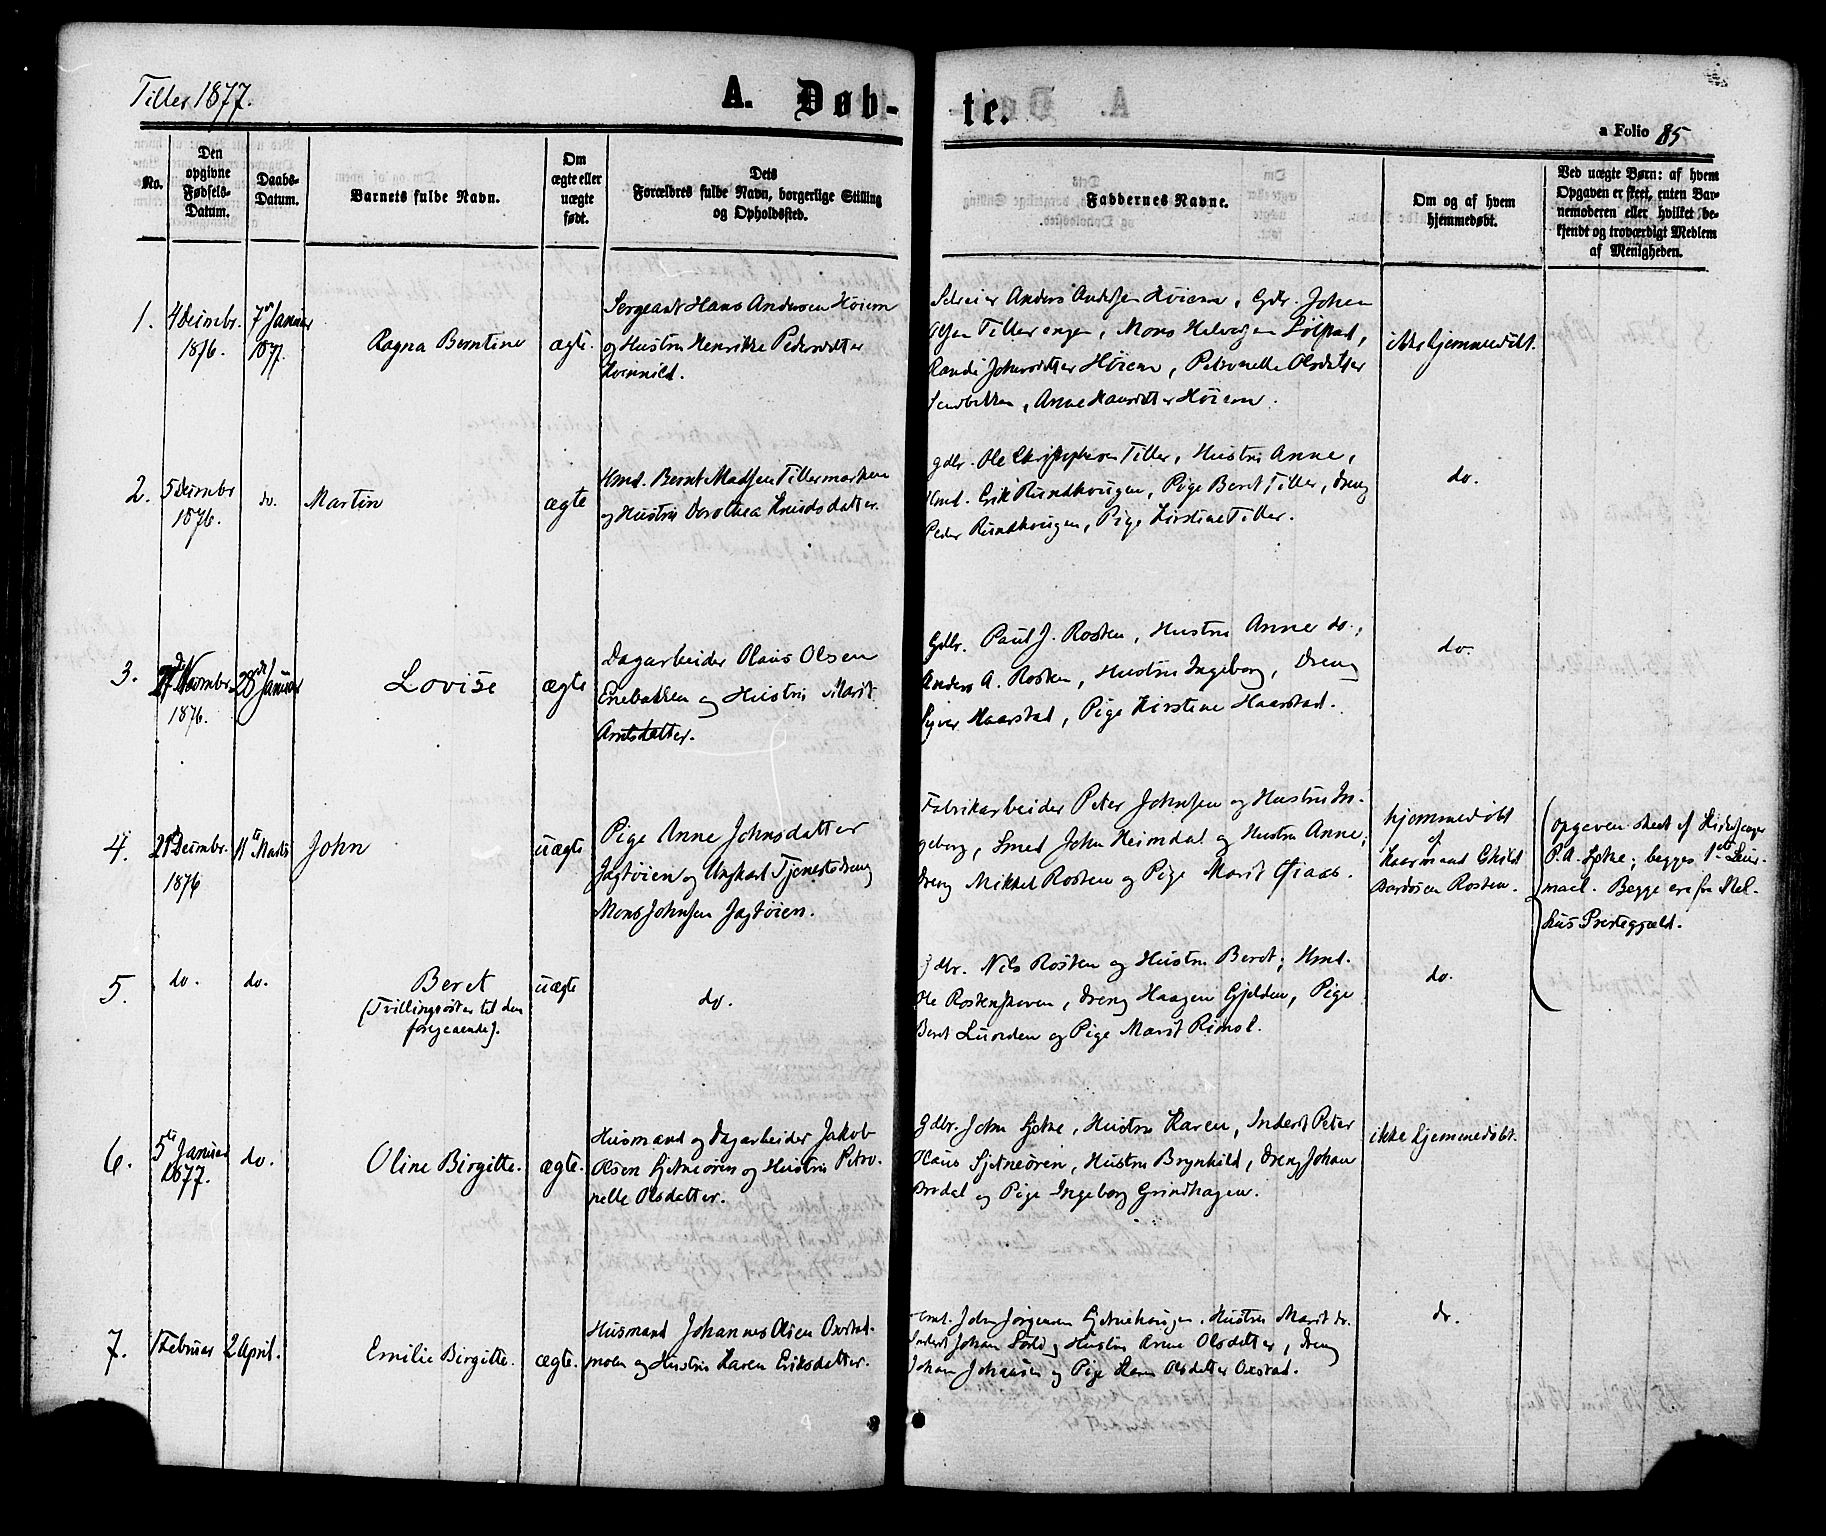 Tiller 1877.
A. Døb-
te.
a Folio 85
No.
Den opgivne Fødsels-Datum.
Daabs-Datum.
Barnets fulde Navn.
Om ægte eller uægte født.
Dets Forældres fulde Navn, borgerlige Stilling og Opholdssted.
Faddernes Navne.
Om og af hvem hjemmedøbt.
Ved uægte Børn: af hvem Opgaven er skeet, enten Barnemoderen eller hvilket bekjendt og troværdigt Medlem af Menigheden.
1.
4 Decmbr. 1876.
7de Januar 1877.
Ragna Berntine
ægte.
Sergeant Hans Andersen Høiem
og Hustru Henrikke Pedersdatter
Anders Andersen Høiem, Gdbr. Johan
Olsen Tillerengen, Mons Halvorsen
Randi Johnsdatter Høiem, Petronelle Olsdatter
Anne Hansdtter Høiem.
ikke hjemmedøbt.
2.
5 Decmbr 1876.
do.
Martin
ægte
Hmd. Bernt Madsen Tillermarken
og Hustru Dorothea Knudsdatter.
gdbr. Ole Christophersen Tiller, Hustru Anne,
Hmd. Erik Rundhougen, Pige Beret Tiller, dreng
Peder Rundhougen, Pige Kirstine Tiller.
do.
3.
Novmbr 1876.
28de Januar
Lovise
ægte
Dagarbeider Olaus Olsen
Enebakken og Hustru Marit
Arntsdatter.
Gdbr. Paul J. Rosten, Hustru Anne do.,
Anders A. Rosten, Hustru Ingeborg, Dreng
Siver Haarstad, Pige Kirstine Haarstad.
do.
4.
21 Decmbr. 1876
11te Marts
John
uægte
Pige Anne Johnsdatter
Jagtøien og Ungkarl Tjenestedreng
Mons Johnsen Jagtøien.
Fabrikarbeider Peter Johnsen og Hustru In-
geborg, Smed John Heimdal og Hustru Anne,
dreng Mikkel Rosten og Pige Marit Qiaas.
hjemmedøbt
af
Gaarmand
Rosten.
Opgaven skeet af Kirkesanger
P. A. begges 1ste Leier-
maal. Begge ere fra Mel-
hus Prestegjæld.
5.
do.
do.
Beret
(Tvillingsøster til den
foregaaende).
uægte
do.
Gdbr. Nils Rosten og Hustru Beret; Hmd.
Ole Dreng Haagen Gjelden, Pige
Beret og Pige Marit Rimol.
do.
6.
5te Januar 1877.
do.
Oline Birgitte.
ægte.
Husmand og Dagarbeider Jakob
Olsen Sjetneøren og Hustru Petro-
nelle Olsdatter.
Gdbr. John Sjetne, Hustru Karen, Inderst Peter
Olaus Sjetneøren, Hustru Brynhild, dreng Johan
Bredal og Pige Ingeborg Grindhagen.
ikke hjemmedøbt.
7.
1 Februar
2 April.
Emilie Birgitte.
ægte.
Husmand Johannes Olsen Oxstad-
moen og Hustru Karen Eriksdatter.
Hmd. John Jørgensen Sjetnehaugen, Hustru Marit do.
Inderst Johan og Hustru Anne Olsdatter, Dreng
Johan Johansen og Pige Karen Olsdatter Oxstad.
do.